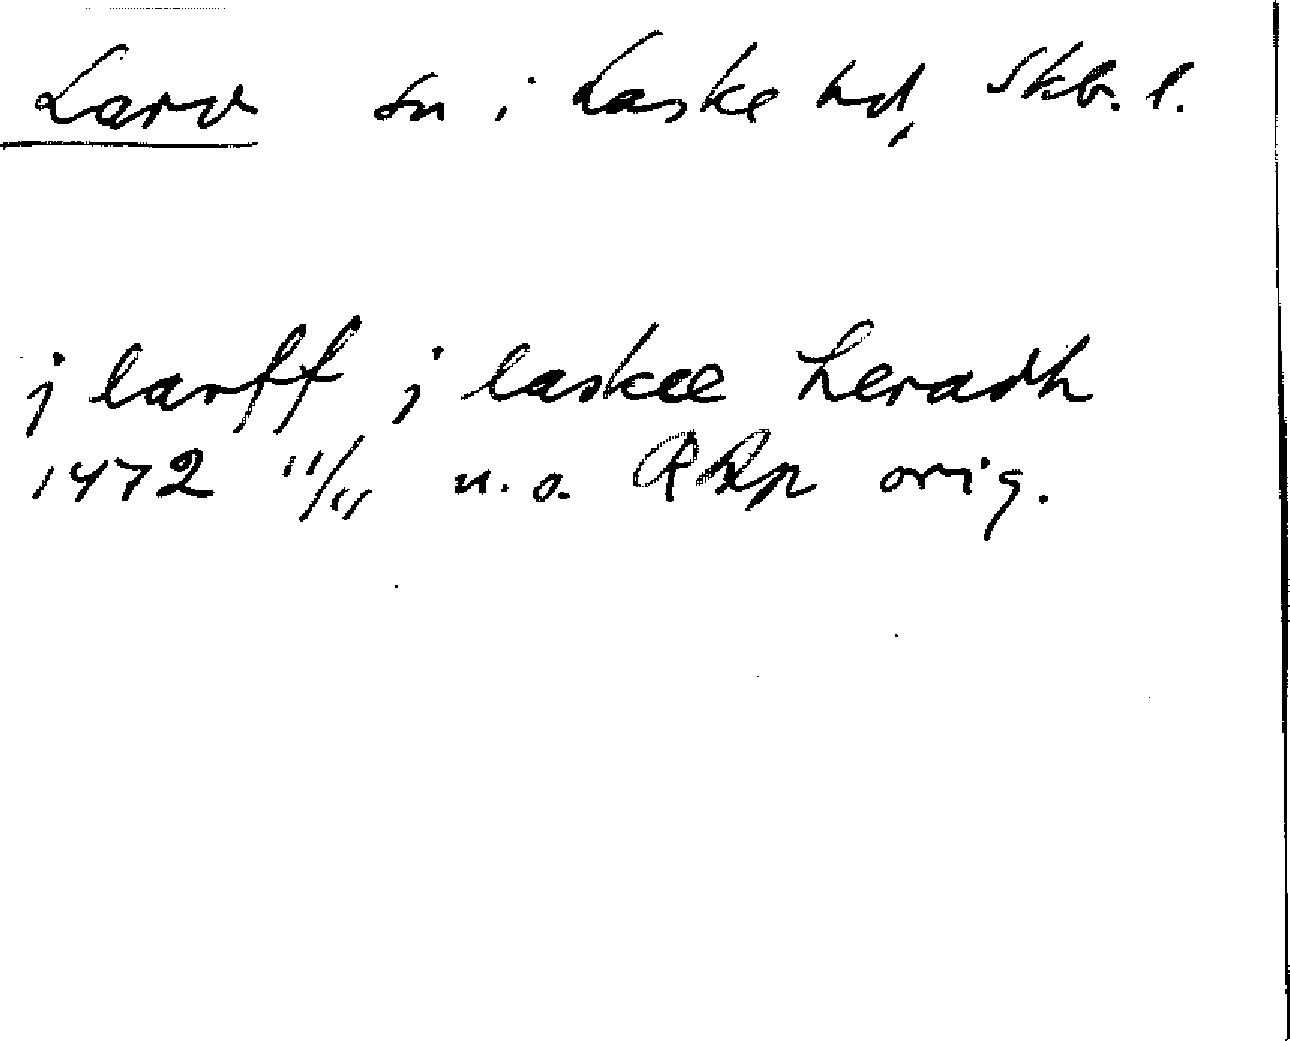 Larv sn i Laske hd, Skb. l.
j larff j laskæ heradh
1472 11/11 u.o. RAp orig.